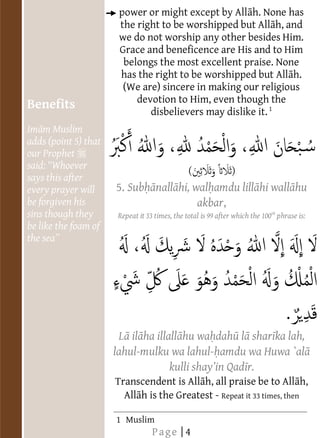 power or might except by Allāh. None has
the right to be worshipped but Allāh, and
we do not worship any other besides Him.
Grace and beneficence are His and to Him
belongs the most excellent praise. None
has the right to be worshipped but Allāh.
(We are) sincere in making our religious
devotion to Him, even though the
disbelievers may dislike it. 1
سُبْحَانَ اللهِ، وَالْحَمْدُ لِلهِ، وَاللهُ أَكْبَرُ
(ثَلاثاً وَثَلاثِينَ)
5. Subḥānallāhi, walḥamdu lillāhi wallāhu
akbar,
Repeat it 33 times, the total is 99 after which the 100th phrase is:
لَا إِلَهَ إِلَّا اللهُ وَحْدَهُ لَا شَرِيكَ لَهُ، لَهُ
الْمُلْكُ وَلَهُ الْحَمْدُ وَهُوَ عَلَى كُلِّ شَيْءٍ
قَدِيرٌ.
Lā ilāha illallāhu waḥdahū lā sharīka lah,
lahul-mulku wa lahul-ḥamdu wa Huwa `alā
kulli shay'in Qadīr.
Transcendent is Allāh, all praise be to Allāh,
Allāh is the Greatest - Repeat it 33 times, then
1 Muslim
Page | 4
Benefits
Imām Muslim
adds (point 5) that
our Prophet ﷺ
said: "Whoever
says this after
every prayer will
be forgiven his
sins though they
be like the foam of
the sea"